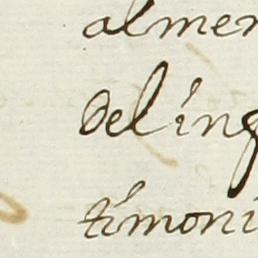 almen
Deling
timoni